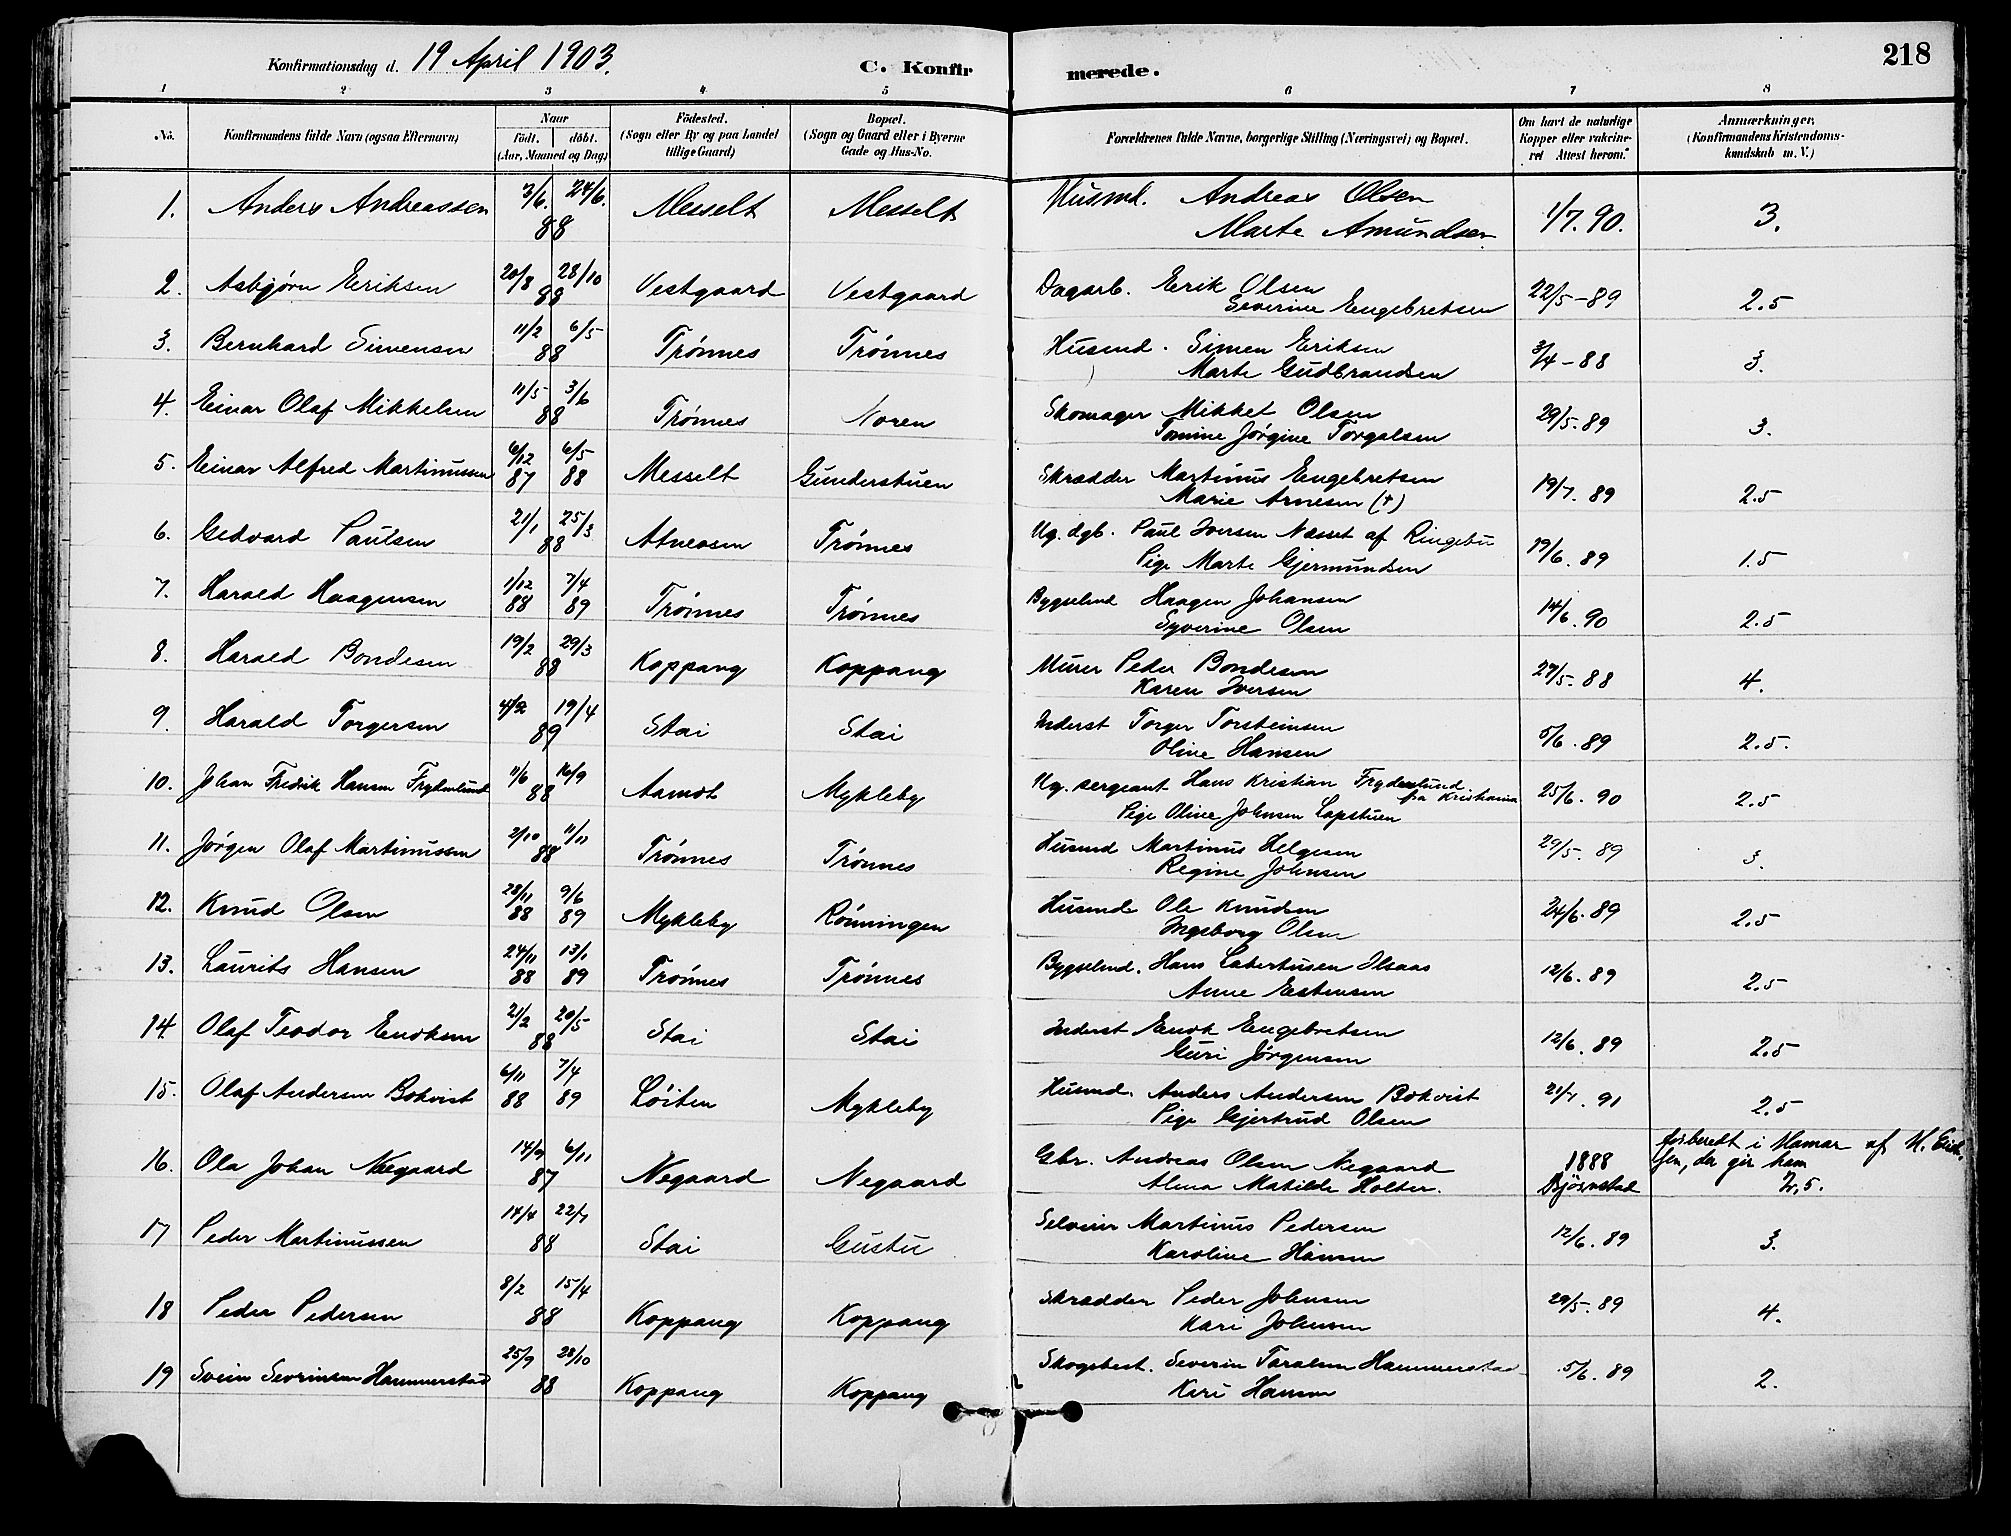 Konfirmationsdag d. 19 April 1903. C. Konfirmerede. 218
1 2 3 4 5 6 7 8
No. Konfirmandens fulde Navn (ogsaa Efternavn) Naar født. døbt. (Aar, Maaned og Dag) Fødested. (Sogn eller By og paa Landet tillige Gaard) Bopæl. (Sogn og Gaard eller i Byerne Gade og Hus-No. Forældrenes fulde Navne, borgerlige Stilling (Næringsvei) og Bopæl. Om havt de naturlige Kopper eller vakcineret Attest herom. Anmærkninger. (Konfirmandens Kristendomskundskab m. V.)
1. Anders Andreassen 3/6. 24/6. 88 Messelt Messelt Husmd. Andreas Olsen 1/7. 90. 3.
Marte Amundsen
2. Asbjørn Eriksen 20/8 28/10 88 Vestgaard Vestgaard Dagarb. Erik Olsen 22/5-89 2.5
Severine Engebretsen
3. Bernhard Simensen 11/2 6/5 88 Trønnes Trønnes Husmd. Simen Eriksen 3/4-88 3.
Marte Gudbrandsen
4. Einar Olaf Mikkelsen 11/5 3/6 88 Trønnes Noren Skomager Mikkel Olsen 29/5.89 3.
Tomine Jørgine Torgalsen
5. Einar Alfred Martinussen 6/12 87 6/5 88 Messelt Gunderstuen Skrædder Martinus Engebretsen 19/7. 89 2.5
Marie Arnesen (†)
6. Gedvard Paulsen 21/1 25/3 88 Atneosen Trønnes Ug. dgb. Paul Iversen Næsset af Ringebu 19/6. 89 1.5
Pige Marte Gjermundsen
7. Harald Haagensen 1/12 88 7/4 89 Trønnes Trønnes Bygselmd Haagen Johansen 14/6. 90 2.5
Syverine Olsen
8. Harald Bondesen 19/2 29/3 88 Koppang Koppang Murer Peder Bondesen 27/5. 88 4.
Karen Iversen
9. Harald Torgersen 4/2 19/4 89 Stai Stai Inderst Torger Torsteinsen 5/6. 89 2.5.
Oline Hansen
10. Johan Fredrik Hansen Frydenlund 11/6 16/9 88 Aamot Mykleby Ug. sergeant Hans Kristian Frydenlund fra Kristiania 25/6. 90 2.5
Pige Oline Johnsen Lapstuen
11. Jørgen Olaf Martinussen 2/10 11/11 88 Trønnes Trønnes Husmd Martinus Helgesen 29/5. 89 3.
Regine Johnsen
12. Knud Olsen 28/11 88 9/6 89 Mykleby Rønningen Husmd. Ole Knudsen 24/6. 89 2.5
Ingeborg Olsen
13. Laurits Hansen 24/11 88 13/1 89 Trønnes Trønnes Bygselmd. Hans Ilsaas 12/6. 89 2.5
Anne Estensen
14. Olaf Teodor Enoksen 21/2 20/5 88 Stai Stai Inderst Enok Engebretsen 12/6. 89 2.5
Guri Jørgensen
15. Olaf Andersen Bokvist 6/11 88 7/4 89 Løiten Mykleby Husmd. Anders Andersen Bokvist 21/7. 91 2.5
Pige Gjertrud Olsen
16. Ola Johan Negaard 14/9 6/11 87 Negaard Negaard Gbr. Andreas Olsen Negaard 1888 forberedt i Hamar af H. Erichsen, der gir ham
Alma Matilde Holter. Bjørnstad 2,5.
17 Peder Martinussen 14/4 22/7 88 Stai Gustu Selveier Martinus Pedersen 12/6. 89 3.
Karoline Hansen
18 Peder Pedersen 8/2 15/4 88 Koppang Koppang Skrædder Peder Johnsen 29/5. 89 4.
Kari Johnsen
19 Svein Sevrinsen Hammerstad 25/9 28/10 88 Koppang Koppang Skogsbest. Severin Taralsen Hammerstad 5/6. 89 2.
Kari Hansen